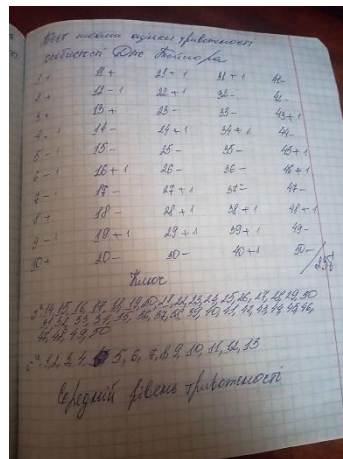 Тест шкали оцінки тривожності
особистості Дж. Тейлора
1 + 11 + 21 + 1 31 + 1 41 -
2 + 12 - 1 22 + 1 32 - 42 -
3 + 13 + 23 - 33 - 43 + 1
4 - 1 14 - 24 + 1 34 + 1 44 -
5 - 1 15 - 25 - 35 - 45 + 1
6 - 1 16 + 1 26 - 36 - 46 + 1
7 - 1 17 - 27 + 1 37 - 47 -
8 + 18 - 28 + 1 38 + 1 48 + 1
9 - 1 19 + 1 29 + 1 39 + 1 49 -
10 + 20 - 30 - 40 + 1 50 -
Ключ
14, 15, 16, 17, 18, 19, 20, 21, 22, 23, 24, 25, 26, 27, 28, 29, 30
31, 32, 33, 34, 35, 36, 37, 38, 39, 40, 41, 42, 43, 44, 45, 46,
47, 48, 49, 50
1, 2, 3, 4, 5, 6, 7, 8, 9, 10, 11, 12, 13
Середній рівень тривожності